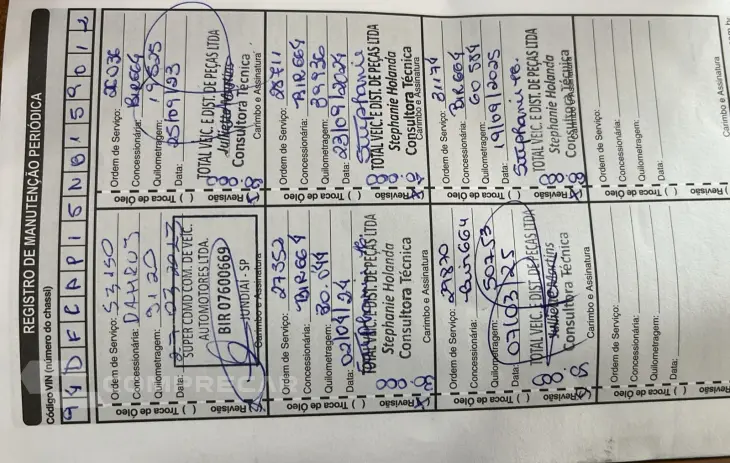 REGISTRO DE MANUTENÇÃO PERIÓDICA
Código VIN (número do chassi)
94DFCAP15NB159012
Ordem de Serviço: 53150
Concessionária:
Quilometragem: 9120
Data:
SUPER COM COM. DE VEIC.
AUTOMOTORES LTDA.
BIR 07600669
JUNDIAÍ - SP
Carimbo e Assinatura
Revisão ( ) Troca de Óleo
Ordem de Serviço:
Concessionária: BIR664
Quilometragem: 19525
Data: 25/09/23
TOTAL VEIC. E DIST. DE PEÇAS LTDA
Consultora Técnica
Carimbo e Assinatura
Revisão ( ) Troca de Óleo
Ordem de Serviço: 27352
Concessionária: BIR664
Quilometragem: 30.044
Data: 02/04/24
TOTAL VEIC. E DIST. DE PEÇAS LTDA
Stephanie Holanda
Consultora Técnica
Carimbo e Assinatura
Revisão ( ) Troca de Óleo
Ordem de Serviço: 28711
Concessionária: BIR664
Quilometragem: 39936
Data: 23/09/2024
Stephanie
TOTAL VEIC. E DIST. DE PEÇAS LTDA
Stephanie Holanda
Consultora Técnica
Carimbo e Assinatura
Revisão ( ) Troca de Óleo
Ordem de Serviço: 29870
Concessionária: BIR664
Quilometragem: 50753
Data: 07/03/25
TOTAL VEIC. E DIST. DE PEÇAS LTDA
Consultora Técnica
Carimbo e Assinatura
Revisão ( ) Troca de Óleo
Ordem de Serviço: 31174
Concessionária: BIR664
Quilometragem: 60584
Data: 19/09/2025
TOTAL VEIC. E DIST. DE PEÇAS LTDA
Stephanie Holanda
Consultora Técnica
Carimbo e Assinatura
Revisão ( ) Troca de Óleo
Ordem de Serviço:
Concessionária:
Quilometragem:
Data:
Carimbo e Assinatura
Revisão ( ) Troca de Óleo
Ordem de Serviço:
Concessionária:
Quilometragem:
Data:
Carimbo e Assinatura
Revisão ( ) Troca de Óleo
COMPRECAR